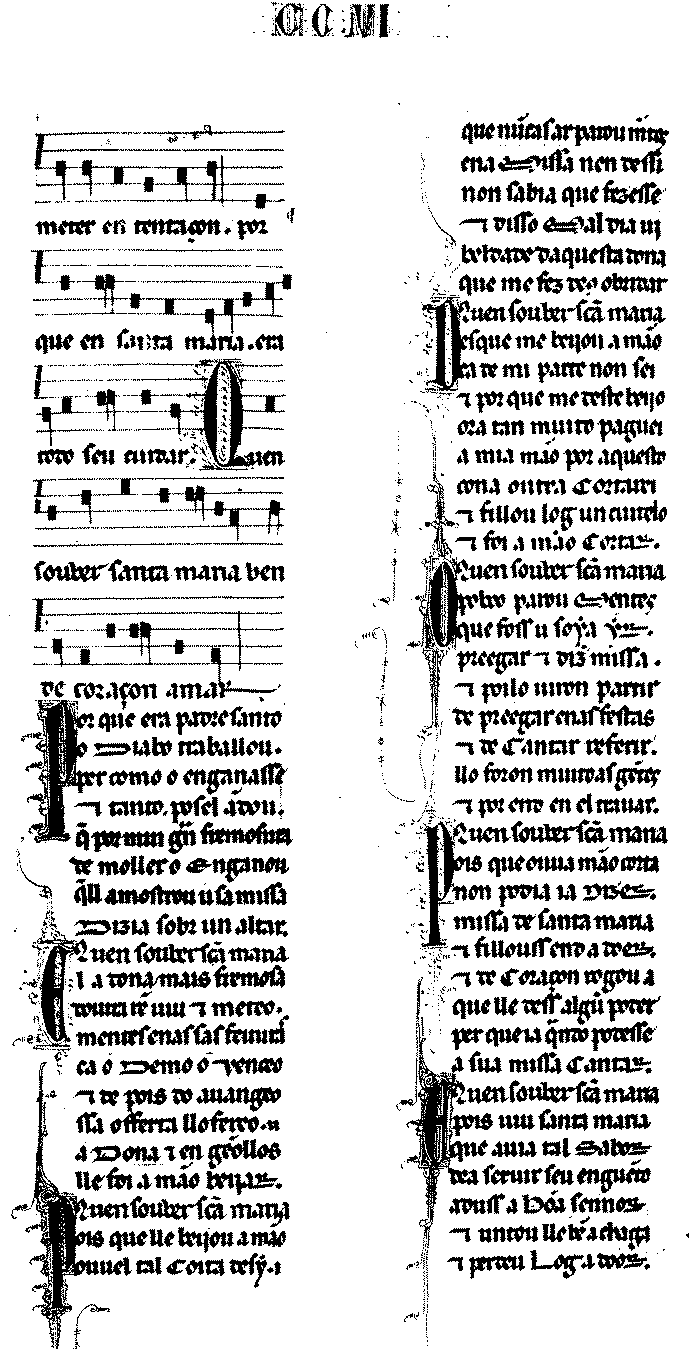 CCVI
meter en tentaçon. por
que en santa maria. era
todo seu cuidar. Quen
souber santa maria ben
de coraçon amar
Por que era padre santo
o Diabo traballou.
per como o enganasse
⁊ tanto. posel a dou.
q̃ por mui gñ fremosura
de moller o Enganou
q̃ll amostrou u sa missa
Dizia sobr un altar.
Quen souber sc̃a maria
El a dona mais fremosa
⁊ meteo.
mentes enas sas
ca o Demo o venceo
⁊ de pois do auangeo
ssa offerta llofereo.
a Dona ⁊ en gẽollos
lle foi a mão beijar.
Quen souber sc̃a maria
Pois que lle beijou a mão
ouuel tal Coita desy.
que nũca sar parou mẽtes
ena Missa nen dessi
non sabia que fezesse
⁊ disso Mal dia ui
beldade daquesta dona
que me fez obridar
Quen souber sc̃a maria
Desque me beijou a mão
ca de mi parte non sei
⁊ por que me deste beijo
ora tan muito paguei
a mia mão por aquesto
cona outra Cortarei
⁊ fillou log un cuitelo
⁊ foi a mão Cortar.
Quen souber sc̃a maria
O poboo parou Mentes
que foss u soya
preegar ⁊ diz̃ missa.
⁊ poilo uiron partir
de preegar enas festas
⁊ de Cantar referir.
llo foron muitas gẽtes
⁊ por endo en el trauar.
Quen souber sc̃a maria
Pois que ouuia mão corta
non podia ia Dizer.
missa de santa maria
⁊ fillouss end a doer.
⁊ de Coraçon rogou a
que lle dess algũ poder
per que ia q̃ndo podesse
a sua missa Cantar.
Quen souber sc̃a maria
Pois uiu santa maria
que auia tal Sabor
dea seruir seu enguẽto
aduss a bõa sennor
⁊ untou lle bẽ a chaga
⁊ perdeu Log a door.